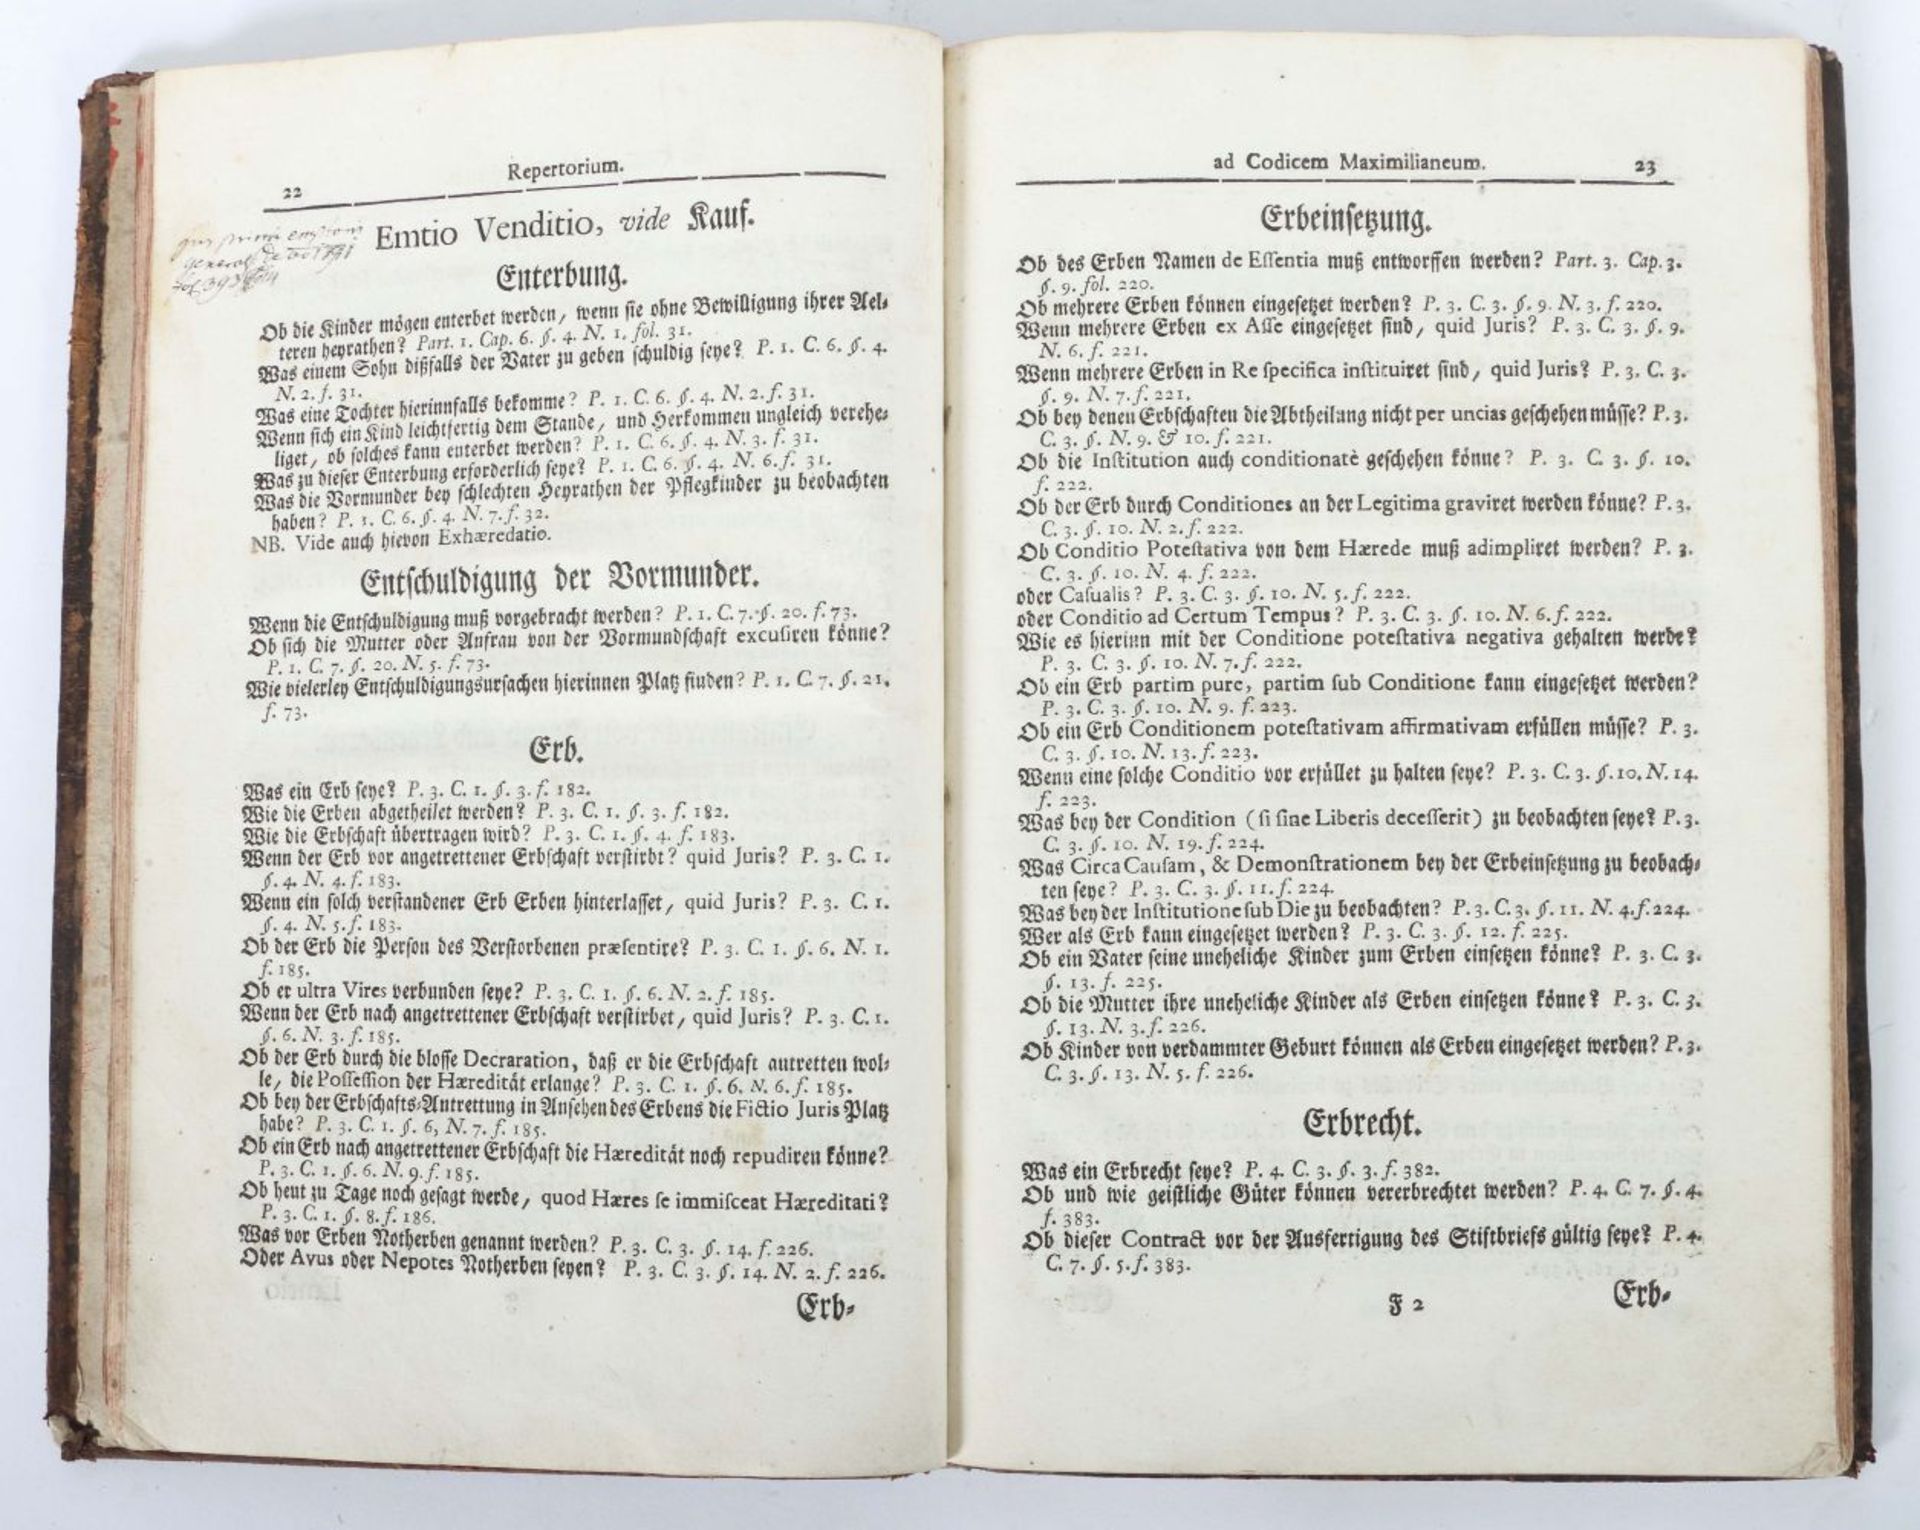 22
Repertorium.
Emtio Venditio, vide Kauf.
general
Enterbung.
Ob die Kinder mögen enterbet werden, wenn sie ohne Bewilligung ihrer Ael-
teren heyrathen? Part. 1. Cap. 6. §. 4. N. 1. fol. 31.
Was einem Sohn dißfalls der Vater zu geben schuldig seye? P. 1. C. 6. §. 4.
N. 2. f. 31.
Was eine Tochter hierinnfalls bekomme? P. 1. C. 6. §. 4. N. 2. f. 31.
Wenn sich ein Kind leichtfertig dem Stande, und Herkommen ungleich verehe-
liget, ob solches kann enterbet werden? P. 1. C. 6. §. 4. N. 3. f. 31.
Was zu dieser Enterbung erforderlich seye? P. 1. C. 6. §. 4. N. 6. f. 31.
Was die Vormunder bey schlechten Heyrathen der Pflegkinder zu beobachten
haben? P. 1. C. 6. §. 4. N. 7. f. 32.
NB. Vide auch hievon Exhæredatio.
Entschuldigung der Vormunder.
Wenn die Entschuldigung muß vorgebracht werden? P. 1. C. 7. §. 20. f. 73.
Ob sich die Mutter oder Anfrau von der Vormundschaft excusiren könne?
P. 1. C. 7. §. 20. N. 5. f. 73.
Wie vielerley Entschuldigungsursachen hierinnen Platz finden? P. 1. C. 7. §. 21.
f. 73.
Erb.
Was ein Erb seye? P. 3. C. 1. §. 3. f. 182.
Wie die Erben abgetheilet werden? P. 3. C. 1. §. 3. f. 182.
Wie die Erbschaft übertragen wird? P. 3. C. 1. §. 4. f. 183.
Wenn der Erb vor angetrettener Erbschaft verstirbt? quid Juris? P. 3. C. 1.
§. 4. N. 4. f. 183.
Wenn ein solch verstandener Erb Erben hinterlasset, quid Juris? P. 3. C. 1.
§. 4. N. 5. f. 183.
Ob der Erb die Person des Verstorbenen præsentire? P. 3. C. 1. §. 6. N. 1.
f. 185.
Ob er ultra Vires verbunden seye? P. 3. C. 1. §. 6. N. 2. f. 185.
Wenn der Erb nach angetrettener Erbschaft verstirbet, quid Juris? P. 3. C. 1.
§. 6. N. 3. f. 185.
Ob der Erb durch die blosse Decraration, daß er die Erbschaft antretten wol-
le, die Possession der Hæredität erlange? P. 3. C. 1. §. 6. N. 6. f. 185.
Ob bey der Erbschafts-Antrettung in Ansehen des Erbens die Fictio Juris Platz
habe? P. 3. C. 1. §. 6, N. 7. f. 185.
Ob ein Erb nach angetrettener Erbschaft die Hæredität noch repudiren könne?
P. 3. C. 1. §. 6. N. 9. f. 185.
Ob heut zu Tage noch gesagt werde, quod Hæres se immisceat Hæreditati?
P. 3. C. 1. §. 8. f. 186.
Was vor Erben Notherben genannt werden? P. 3. C. 3. §. 14. f. 226.
Oder Avus oder Nepotes Notherben seyen? P. 3. C. 3. §. 14. N. 2. f. 226.
Erb-
ad Codicem Maximilianeum.
23
Erbeinsetzung.
Ob des Erben Namen de Essentia muß entworffen werden? Part. 3. Cap. 3.
§. 9. fol. 220.
Ob mehrere Erben können eingesetzet werden? P. 3. C. 3. §. 9. N. 3. f. 220.
Wenn mehrere Erben ex Asse eingesetzet sind, quid Juris? P. 3. C. 3. §. 9.
N. 6. f. 221.
Wenn mehrere Erben in Re specifica instituiret sind, quid Juris? P. 3. C. 3.
§. 9. N. 7. f. 221.
Ob bey denen Erbschaften die Abtheilung nicht per uncias geschehen müsse? P. 3.
C. 3. §. N. 9. & 10. f. 221.
Ob die Institution auch conditionatè geschehen könne? P. 3. C. 3. §. 10.
f. 222.
Ob der Erb durch Conditiones an der Legitima graviret werden könne? P. 3.
C. 3. §. 10. N. 2. f. 222.
Ob Conditio Potestativa von dem Hærede muß adimpliret werden? P. 3.
C. 3. §. 10. N. 4. f. 222.
oder Casualis? P. 3. C. 3. §. 10. N. 5. f. 222.
oder Conditio ad Certum Tempus? P. 3. C. 3. §. 10. N. 6. f. 222.
Wie es hierinn mit der Conditione potestativa negativa gehalten werde?
P. 3. C. 3. §. 10. N. 7. f. 222.
Ob ein Erb partim pure, partim sub Conditione kann eingesetzet werden?
P. 3. C. 3. §. 10. N. 9. f. 223.
Ob ein Erb Conditionem potestativam affirmativam erfüllen müsse? P. 3.
C. 3. §. 10. N. 13. f. 223.
Wenn eine solche Conditio vor erfüllet zu halten seye? P. 3. C. 3. §. 10. N. 14.
f. 223.
Was bey der Condition (si sine Liberis decesserit) zu beobachten seye? P. 3.
C. 3. §. 10. N. 19. f. 224.
Was Circa Causam, & Demonstrationem bey der Erbeinsetzung zu beobach-
ten seye? P. 3. C. 3. §. 11. f. 224.
Was bey der Institutione sub Die zu beobachten? P. 3. C. 3. §. 11. N. 4. f. 224.
Wer als Erb kann eingesetzet werden? P. 3. C. 3. §. 12. f. 225.
Ob ein Vater seine uneheliche Kinder zum Erben einsetzen könne? P. 3. C. 3.
§. 13. f. 225.
Ob die Mutter ihre uneheliche Kinder als Erben einsetzen könne? P. 3. C. 3.
§. 13. N. 3. f. 226.
Ob Kinder von verdammter Geburt können als Erben eingesetzet werden? P. 3.
C. 3. §. 13. N. 5. f. 226.
Erbrecht.
Was ein Erbrecht seye? P. 4. C. 3. §. 3. f. 382.
Ob und wie geistliche Güter können vererbrechtet werden? P. 4. C. 7. §. 4.
f. 383.
Ob dieser Contract vor der Ausfertigung des Stiftbriefs gültig seye? P. 4.
C. 7. §. 5. f. 383.
F 2
Erb-